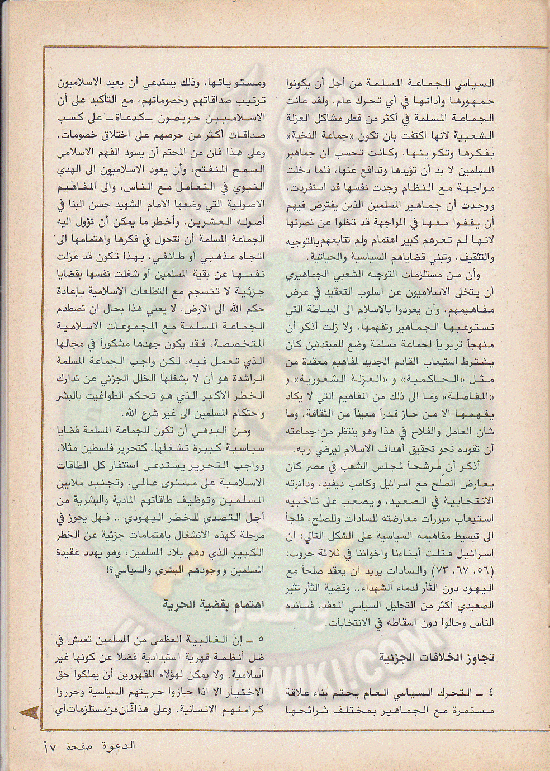 السياسي للجماعة المسلمة من أجل أن يكونوا
جمهورها وأداتها في أي تحرك عام. ولقد عانت
الجماعة المسلمة في أكثر من قطر مشاكل العزلة
الشعبية لانها اكتفت بان تكون «جماعة النخبة»
بفكرها وتكوينها. وكانت تحسب ان جماهير
المسلمين لا بد أن تؤيدها وتدافع عنها، فلما دخلت
مواجهة مع النظام وجدت نفسها قد استفردت،
ووجدت أن جماهير المسلمين الذين يفترض فيهم
أن يقفوا معها في المواجهة قد تخلوا عن نصرتها
لانها لم تعرهم كبير اهتمام ولم تتابعهم بالتوجيه
والتثقيف، وتبني قضاياهم السياسية والحياتية.
وأن من مستلزمات التوجه الشعبي الجماهيري
أن يتخلى الاسلاميون عن اسلوب التعقيد في عرض
مفاهيمهم، وان يعودوا بالاسلام الى البساطة التي
تستوعبها الجماهير وتفهمها. ولا زلت أذكر أن
منهجاً تربوياً لجماعة مسلمة وضع للمبتدئين كان
يشترط استيعاب القادم الجديد لمفاهيم معقدة من
مثل «الحاكمية» و «العزلة الشعورية» و
«المفاصلة» وما الى ذلك من المفاهيم التي لا يكاد
يفهمها الا من حاز قدراً معيناً من الثقافة. وما
شأن العامل والفلاح في هذا وهو ينتظر من جماعته
أن تقوده نحو تحقيق أهداف الاسلام ليرضي ربه.
أذكر أن مُرشحاً لمجلس الشعب في مصر كان
يعارض الصلح مع اسرائيل وكامب ديفيد، ودائرته
الانتخابية في الصعيد، ويصعب على ناخبيه
استيعاب مبررات معارضته للسادات وللصلح، فلجأ
الى تبسيط مفاهيمه السياسية على الشكل التالي: ان
اسرائيل قتلت أبناءنا واخواننا في ثلاثة حروب،
(٥٦، ٦٧، ٧٣) والسادات يريد أن يعقد صلحاً مع
اليهود دون الثأر لدماء الشهداء.. وقضية الثأر تثير
الصعيدي أكثر من التحليل السياسي المعقد، فسانده
الناس وحالوا دون اسقاطه في الانتخابات.
تجاوز الخلافات الجزئية
٤ ـ التحرك السياسي العام يحتم بناء علاقة
مستمرة مع الجماهير بمختلف شرائحها
ومستوياتها، وذلك يستدعي أن يعيد الاسلاميون
ترتيب صداقاتهم وخصوماتهم، مع التأكيد على أن
الاسلاميين حريصون ـ كدعاة ـ على كسب
صداقات أكثر من حرصهم على اختلاق خصومات،
وعلى هذا فان من المحتم أن يسود الفهم الاسلامي
السمح المنفتح، وأن يعود الاسلاميون الى الهدي
النبوي في التعامل مع الناس، والى المفاهيم
الاصولية التي وضعها الامام الشهيد حسن البنا في
أصوله العشرين. وأخطر ما يمكن أن تؤول اليه
الجماعة المسلمة أن تتحول في فكرها واهتمامها الى
اتجاه مذهبي أو طائفي، بهذا تكون قد عزلت
نفسها عن بقية المسلمين أو شغلت نفسها بقضايا
جزئية لا تنسجم مع التطلعات الاسلامية بإعادة
حكم الله الى الارض. لا يعني هذا بحال ان تصطدم
الجماعة المسلمة مع المجموعات الاسلامية
المتخصصة. فقد يكون جهدها مشكوراً في مجالها
الذي تعمل فيه. لكن واجب الجماعة المسلمة
الراشدة هو أن لا يشغلها الخلل الجزئي عن تدارك
الخطر الاكبر الذي هو تحكم الطواغيت بالبشر
واحتكام المسلمين الى غير شرع الله.
ومن البدهي أن تكون للجماعة المسلمة قضايا
سياسية كبيرة تشغلها، كتحرير فلسطين مثلاً.
وواجب التحرير يستدعي استنفار كل الطاقات
الاسلامية على مستوى عالمي. وتجنيد ملايين
المسلمين وتوظيف طاقاتهم المادية والبشرية من
أجل التصدي للخطر اليهودي .. فهل يجوز في
مرحلة كهذه الانشغال باهتمامات جزئية عن الخطر
الكبير الذي دهم بلاد المسلمين، وهو يهدد عقيدة
المسلمين ووجودهم البشري والسياسي؟!
اهتمام بقضية الحرية
٥ ـ ان الغالبية العظمى من المسلمين تعيش في
ظل أنظمة قهرية استبدادية فضلاً عن كونها غير
اسلامية. ولا يمكن لهؤلاء المقهورين أن يملكوا حق
الاختيار الا اذا حازوا حريتهم السياسية وحرروا
كرامتهم الانسانية. وعلى هذا فأن من مستلزمات أي
الدعوة صفحة ١٧
WIKI.COM